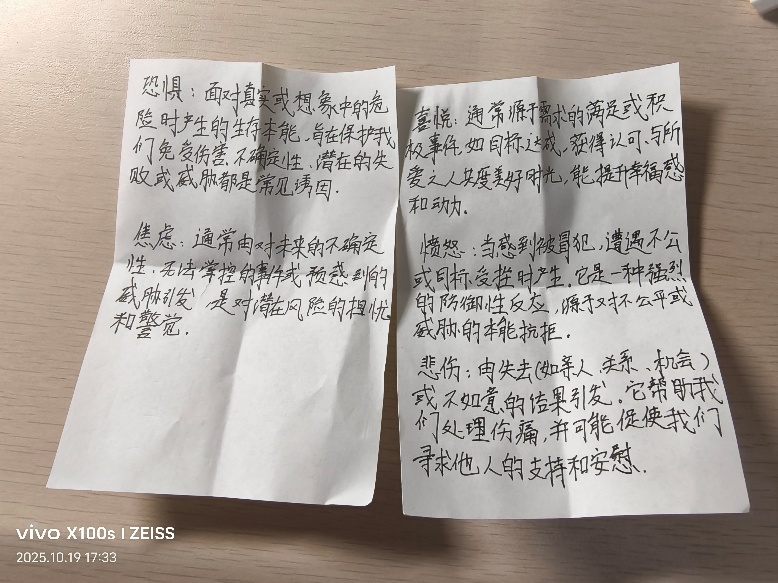 恐惧：面对真实或想象中的危
险时产生的生存本能，旨在保护我
们免受伤害，不确定性、潜在的失
败或威胁都是常见诱因.
焦虑：通常由对未来的不确定
性、无法掌控的事件或预感到的
威胁引发，是对潜在风险的担忧
和警觉.
喜悦：通常源于需求的满足或积
极事件，如目标达成、获得认可、与所
爱之人共度美好时光，能提升幸福感
和动力.
愤怒：当感到被冒犯，遭遇不公
或目标受挫时产生.它是一种强烈
的防御性反应，源于对不公平或
威胁的本能抗拒.
悲伤：由失去(如亲人、关系、机会)
或不如意的结果引发.它帮助我
们处理伤痛,并可能促使我们
寻求他人的支持和安慰.
vivo X100s | ZEISS
2025.10.19 17:33